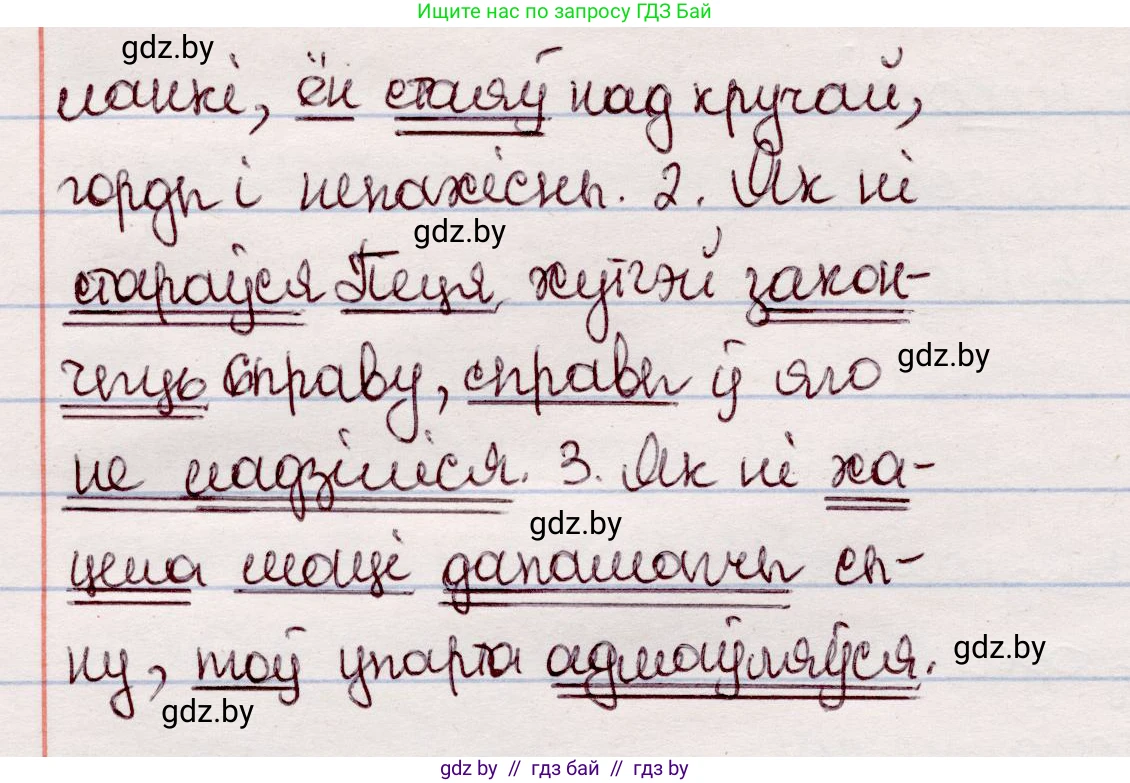 Ищите нас по запросу ГДЗ Бай
gdz.by
ланкі, ён стаяў над кручай,
горды і непахісны. 2. Як ні
gdz.by
стараўся Пеця хутчэй закон-
чыць справу, справы ў яго
gdz.by
не ладзіліся. 3. Як ні ха-
gdz.by
цела маці дапамагчы сы-
ну, той упарта адмаўляўся.
gdz.by
gdz.by
gdz by // гдз бай // гдз by